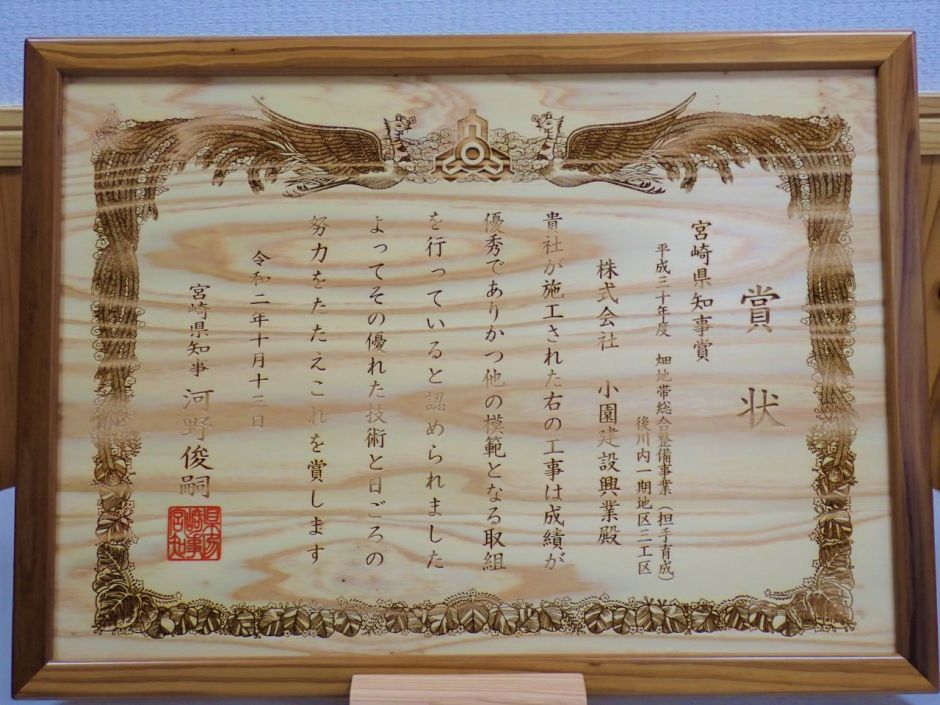 賞状
宮崎県知事賞
平成三十年度 畑地帯総合整備事業（担手育成）
後川内一期地区二工区
株式会社 小園建設興業殿
貴社が施工された右の工事は成績が
優秀でありかつ他の模範となる取組
を行っていると認められました
よってその優れた技術と日ごろの
努力をたたえこれを賞します
令和二年十月十三日
宮崎県知事 河野俊嗣